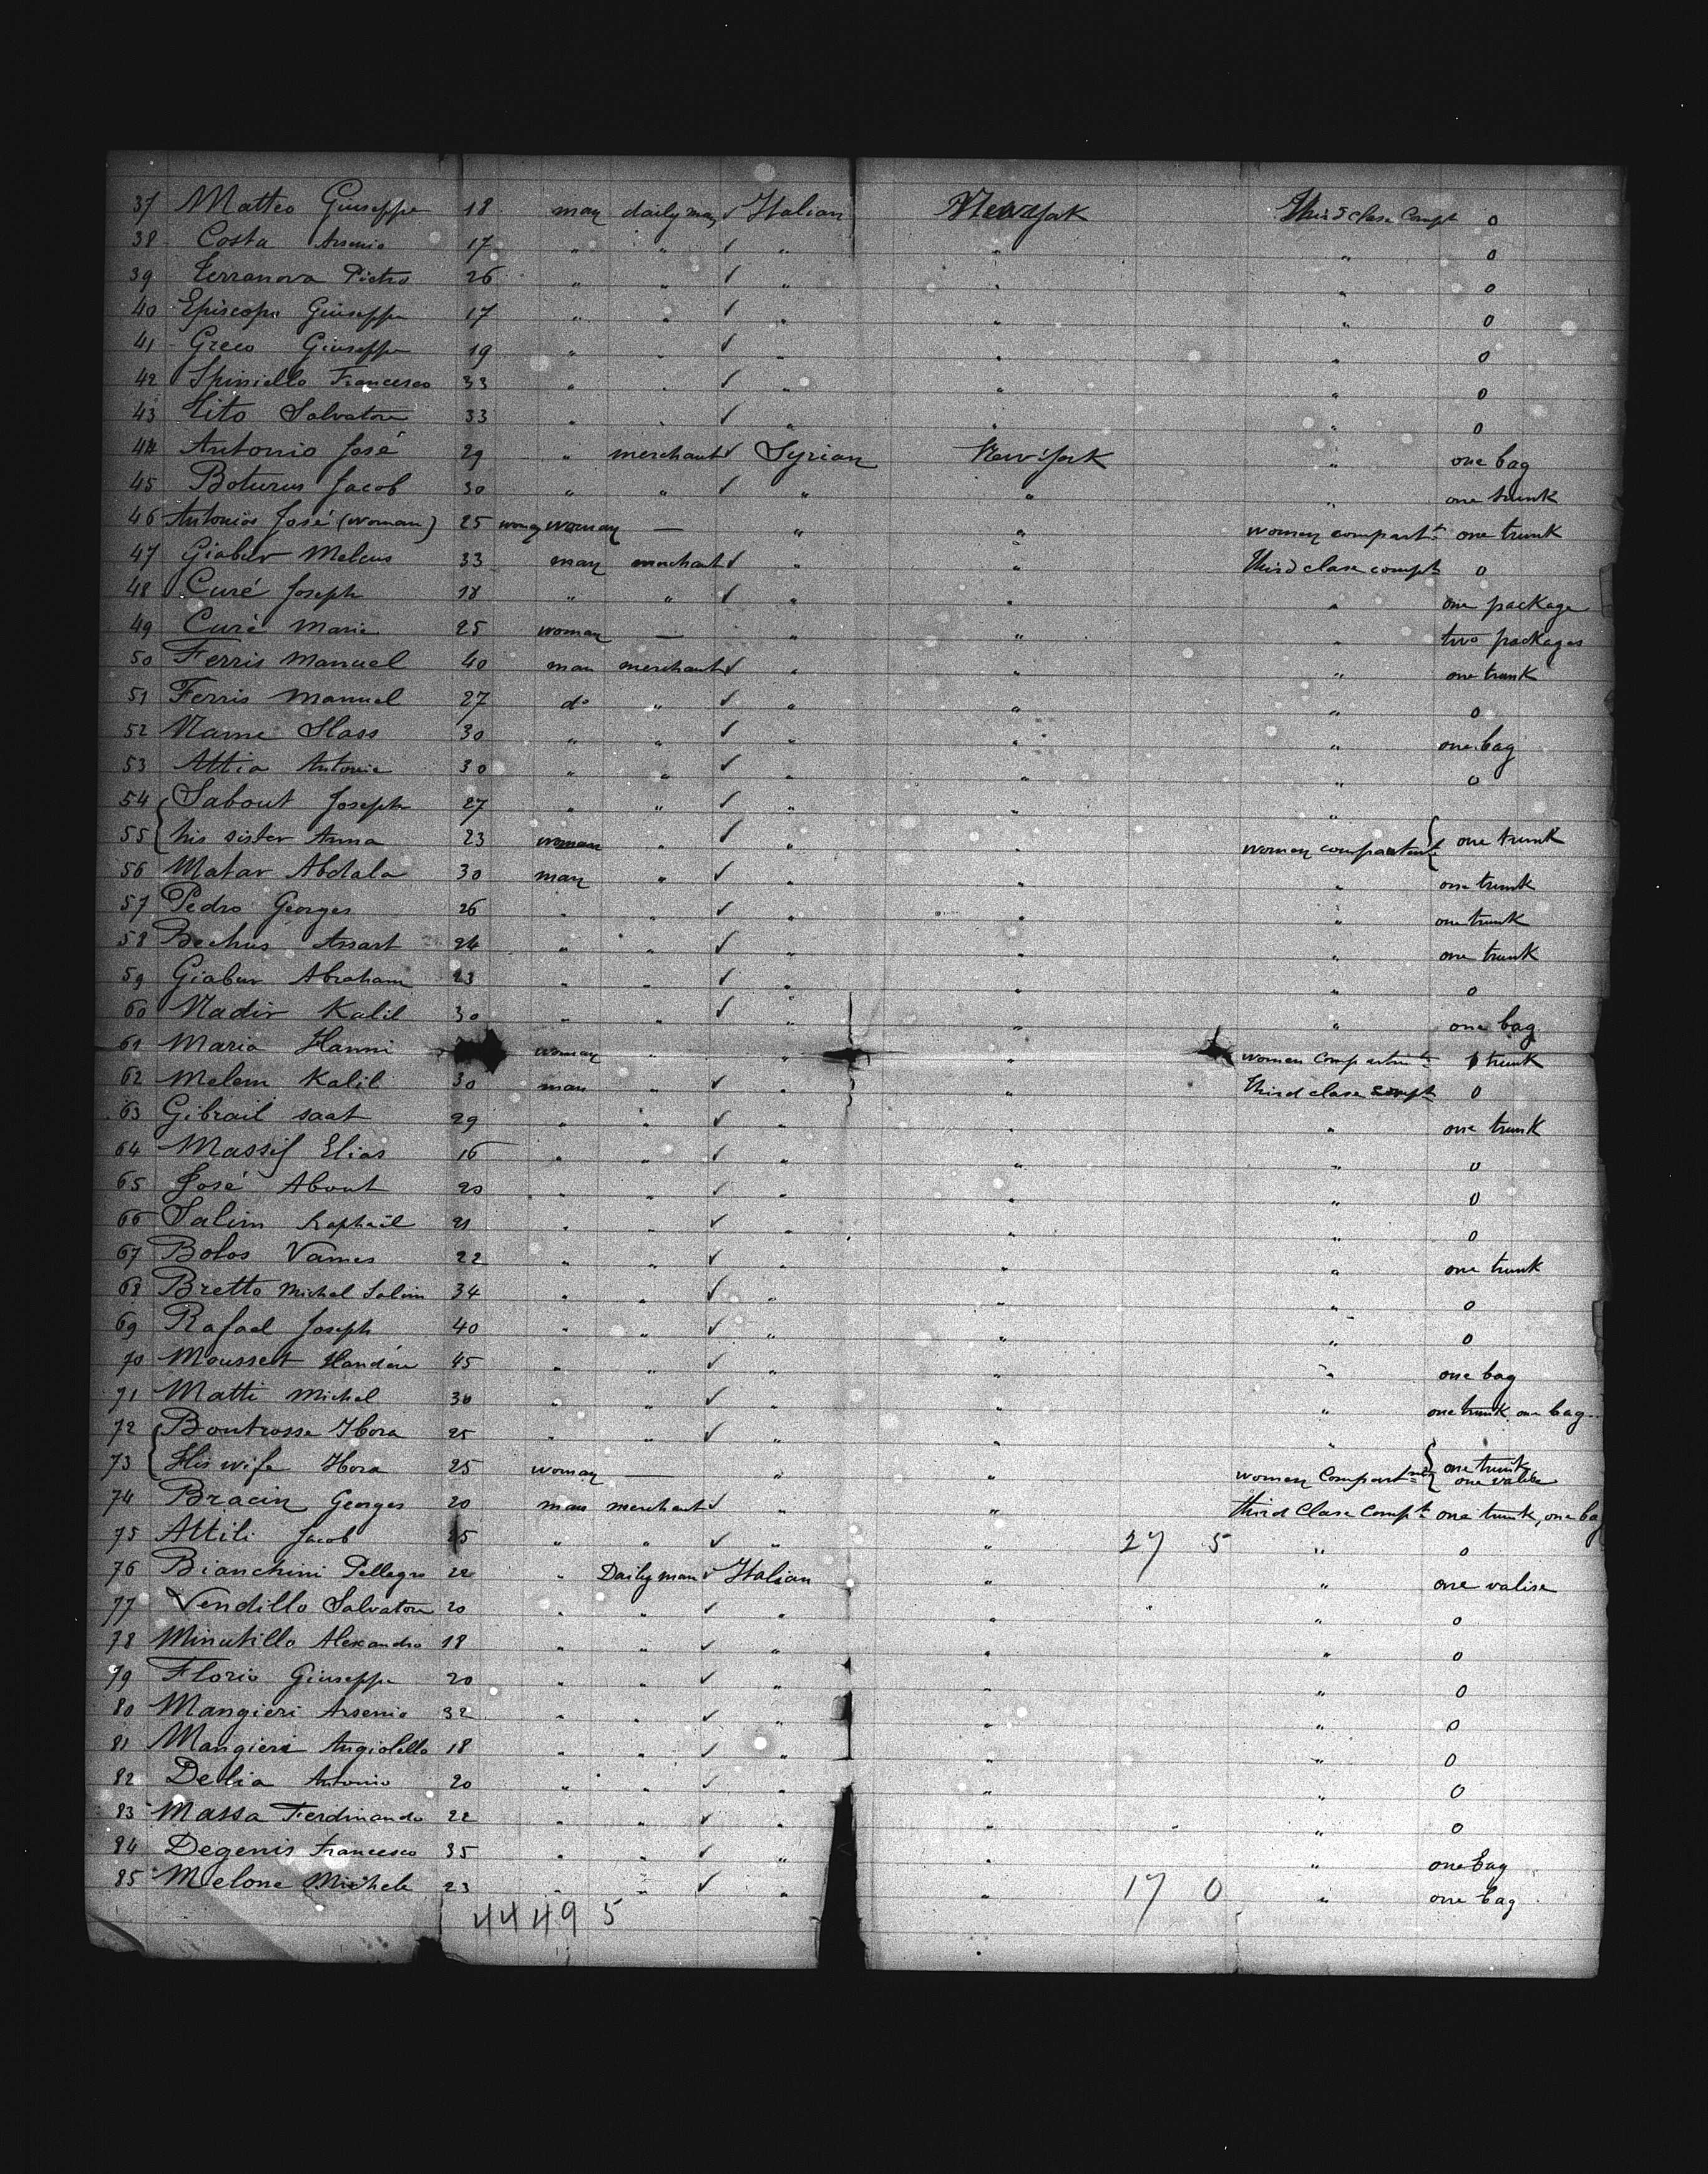 37 Matteo Giuseppe 18 man daily man ✓ Italian New york Third class Compt 0
38 Costa Arsenio 17 " " ✓ " " " 0
39 Terranova Pietro 26 " " ✓ " " " 0
40 Episcopo Giuseppe 17 " " ✓ " " " 0
41 Greco Giuseppe 19 " " ✓ " " " 0
42 Spiniello Francesco 33 " " ✓ " " " 0
43 Tito Salvatore 33 " " ✓ " " " 0
44 Antonio José 29 " merchant ✓ Syrian New York " one bag
45 Boturus Jacob 30 " " ✓ " " " one trunk
46 Antonios José (woman) 25 woman — " " women compartt one trunk
47 Giabur Melcus 33 man merchant ✓ " " Third class compt 0
48 Curé Joseph 18 " " ✓ " " " one package
49 Curé Marie 25 woman — " " " two packages
50 Ferris Manuel 40 man merchant ✓ " " " one trunk
51 Ferris Manuel 27 do " ✓ " " " 0
52 Name Slass 30 " " ✓ " " " one bag
53 Attia Antonio 30 " " ✓ " " " 0
54 Sabout Joseph 27 " " ✓ " " "
55 his sister Anna 23 woman " ✓ " " women compartent one trunk
56 Matar Abdala 30 man " ✓ " " " one trunk
57 Pedro Georges 26 " " ✓ " " " one trunk
58 Bechus Assart 24 " " ✓ " " " one trunk
59 Giabur Abraham 23 " " ✓ " " " 0
60 Nadir Kalil 30 " " ✓ " " " one bag
61 Maria Hanni woman " " " women Compartmt 1 trunk
62 Melem Kalil 30 man " ✓ " " Third class compt 0
63 Gibrail saat 29 " " ✓ " " " one trunk
64 Massif Elias 16 " " ✓ " " " 0
65 José About 20 " " ✓ " " " 0
66 Salim Raphaël 21 " " ✓ " " " 0
67 Bolos Vames 22 " " ✓ " " " one trunk
68 Bretto Michel Salim 34 " " ✓ " " " 0
69 Rafael Joseph 40 " " ✓ " " " 0
70 Moussett 45 " " ✓ " " " one bag
71 Matti Michel 30 " " ✓ " " " one trunk one bag
72 Boutrosse Hora 25 " " ✓ " " "
73 His wife Hora 25 woman — " " women Compartmt one trunk one valise
74 Bracin Georges 20 man merchant ✓ " " third Class Compt one trunk, one bag
75 Attili Jacob 25 " " ✓ " " 27 5 " 0
76 Bianchini Pellegro 22 " Daily man ✓ Italian " " one valise
77 Vendillo Salvatore 20 " " ✓ " " " 0
78 Minutillo Alexandro 18 " " ✓ " " " 0
79 Florio Giuseppe 20 " " ✓ " " " 0
80 Mangieri Arsenio 32 " " ✓ " " " 0
81 Mangieri Angiolello 18 " " ✓ " " " 0
82 Delia Antonio 20 " " ✓ " " " 0
83 Massa Ferdinando 22 " " ✓ " " " 0
84 Degenis Francesco 35 " " ✓ " " " one bag
85 Melone Michele 23 " " ✓ " " 17 0 " one bag
44 49 5